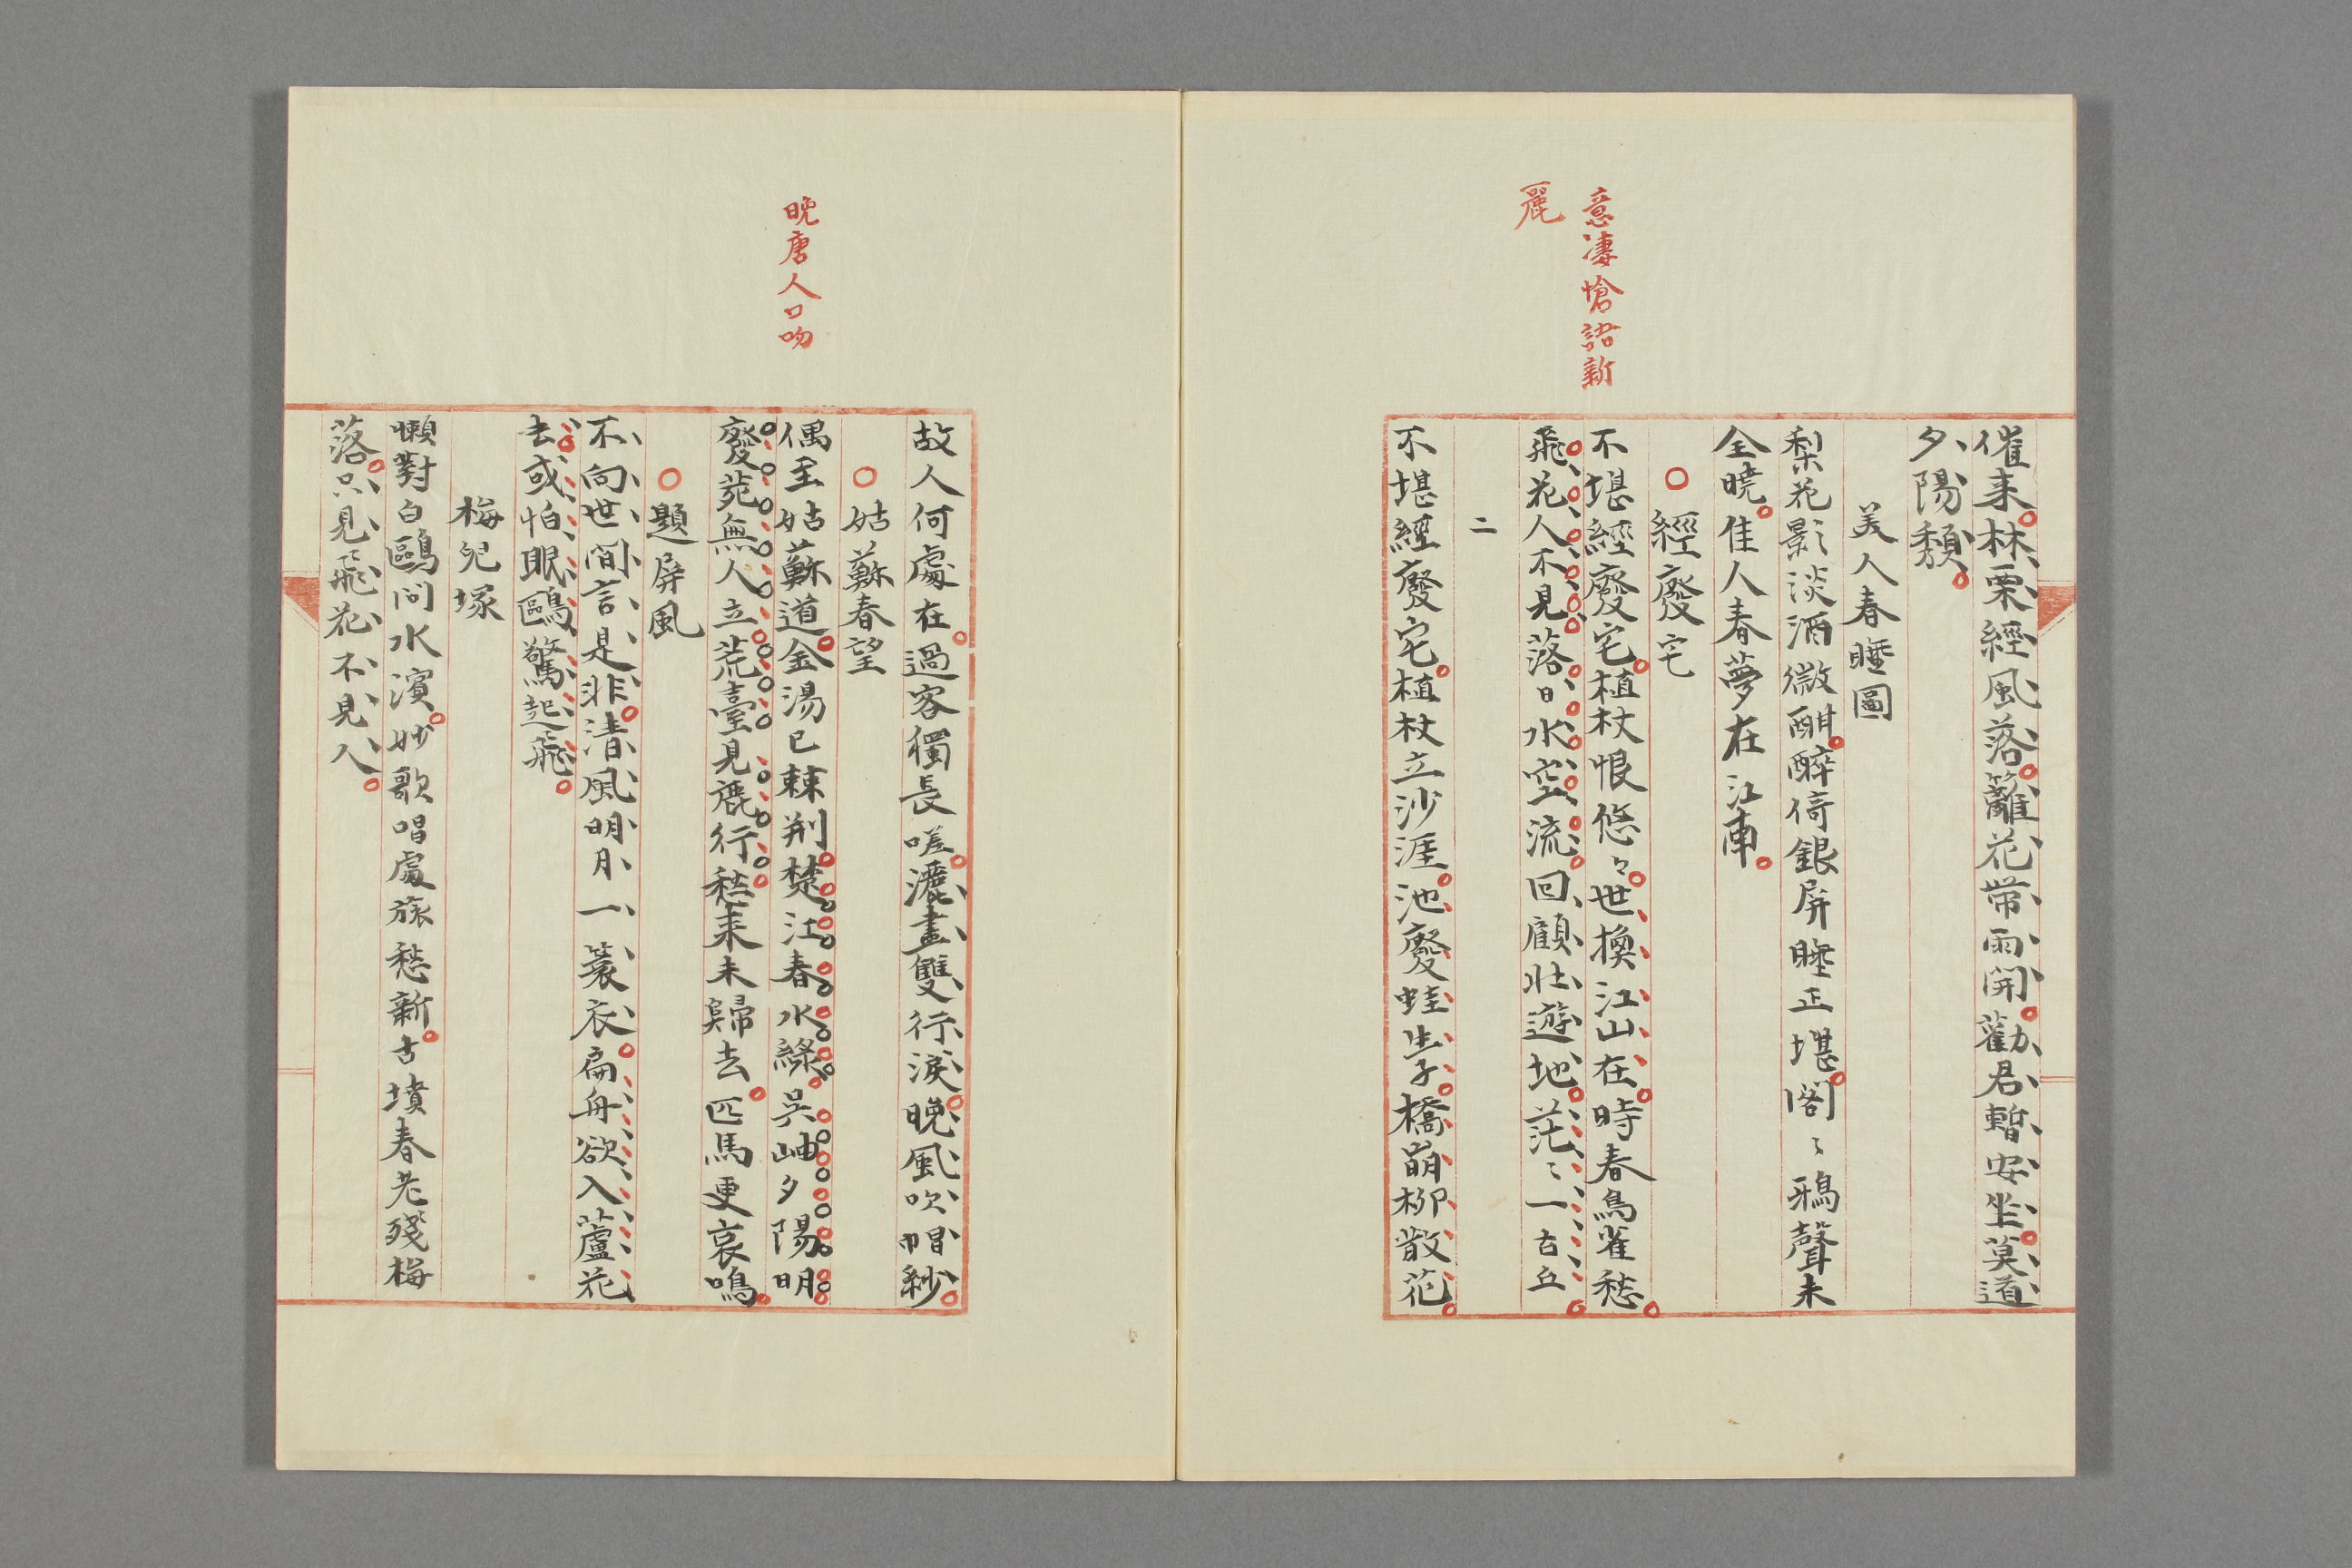 催来林栗經風落籬花帯雨開勸君暫安坐莫道
夕陽頽
美人春睡圖
梨花影淡酒微酣醉倚銀屏睡正堪閣〻鴉聲未
全曉佳人春夢在江南
經廢宅
意凄愴語新
麗
不堪經廢宅植杖恨悠〻世換江山在時春鳥雀愁
飛花人不見落日水空流回顧壮遊地茫〻一古丘
二
不堪經廢宅植杖立沙涯池廢蛙生子橋崩柳散花
故人何處在過客獨長嗟灑盡雙行涙晩風吹帽紗
姑蘇春望
晩唐人口吻
偶至姑蘇道金湯已棘荆楚江春水綠呉岫夕陽明
廢苑無人立荒臺見鹿行愁来未歸去匹馬更哀鳴
題屏風
不向世間言是非清風明月一簑衣扁舟欲入蘆花
去或怕眠鷗驚起飛
梅兒塚
懶對白鷗問水濱妙歌唱處旅愁新古墳春老殘梅
落只見飛花不見人